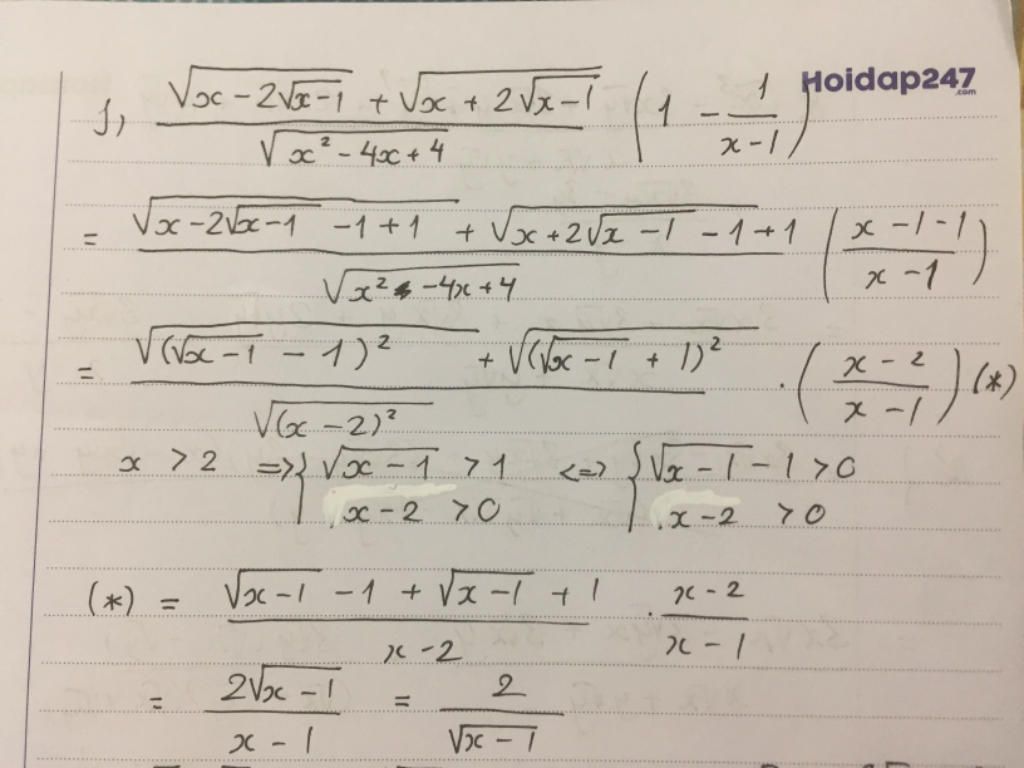 Hoidap247
.com
j, \frac{\sqrt{x - 2\sqrt{x-1}} + \sqrt{x + 2\sqrt{x-1}}}{\sqrt{x^2 - 4x + 4}} \left(1 - \frac{1}{x-1}\right)
= \frac{\sqrt{x - 2\sqrt{x-1} - 1 + 1} + \sqrt{x + 2\sqrt{x-1} - 1 + 1}}{\sqrt{x^2 - 4x + 4}} \left(\frac{x - 1 - 1}{x - 1}\right)
= \frac{\sqrt{(\sqrt{x-1} - 1)^2} + \sqrt{(\sqrt{x-1} + 1)^2}}{\sqrt{(x-2)^2}} . \left(\frac{x-2}{x-1}\right) (*)
x > 2 => \begin{cases} \sqrt{x-1} > 1 \\ x - 2 > 0 \end{cases} <=> \begin{cases} \sqrt{x-1} - 1 > 0 \\ x - 2 > 0 \end{cases}
(*) = \frac{\sqrt{x-1} - 1 + \sqrt{x-1} + 1}{x-2} . \frac{x-2}{x-1}
= \frac{2\sqrt{x-1}}{x-1} = \frac{2}{\sqrt{x-1}}